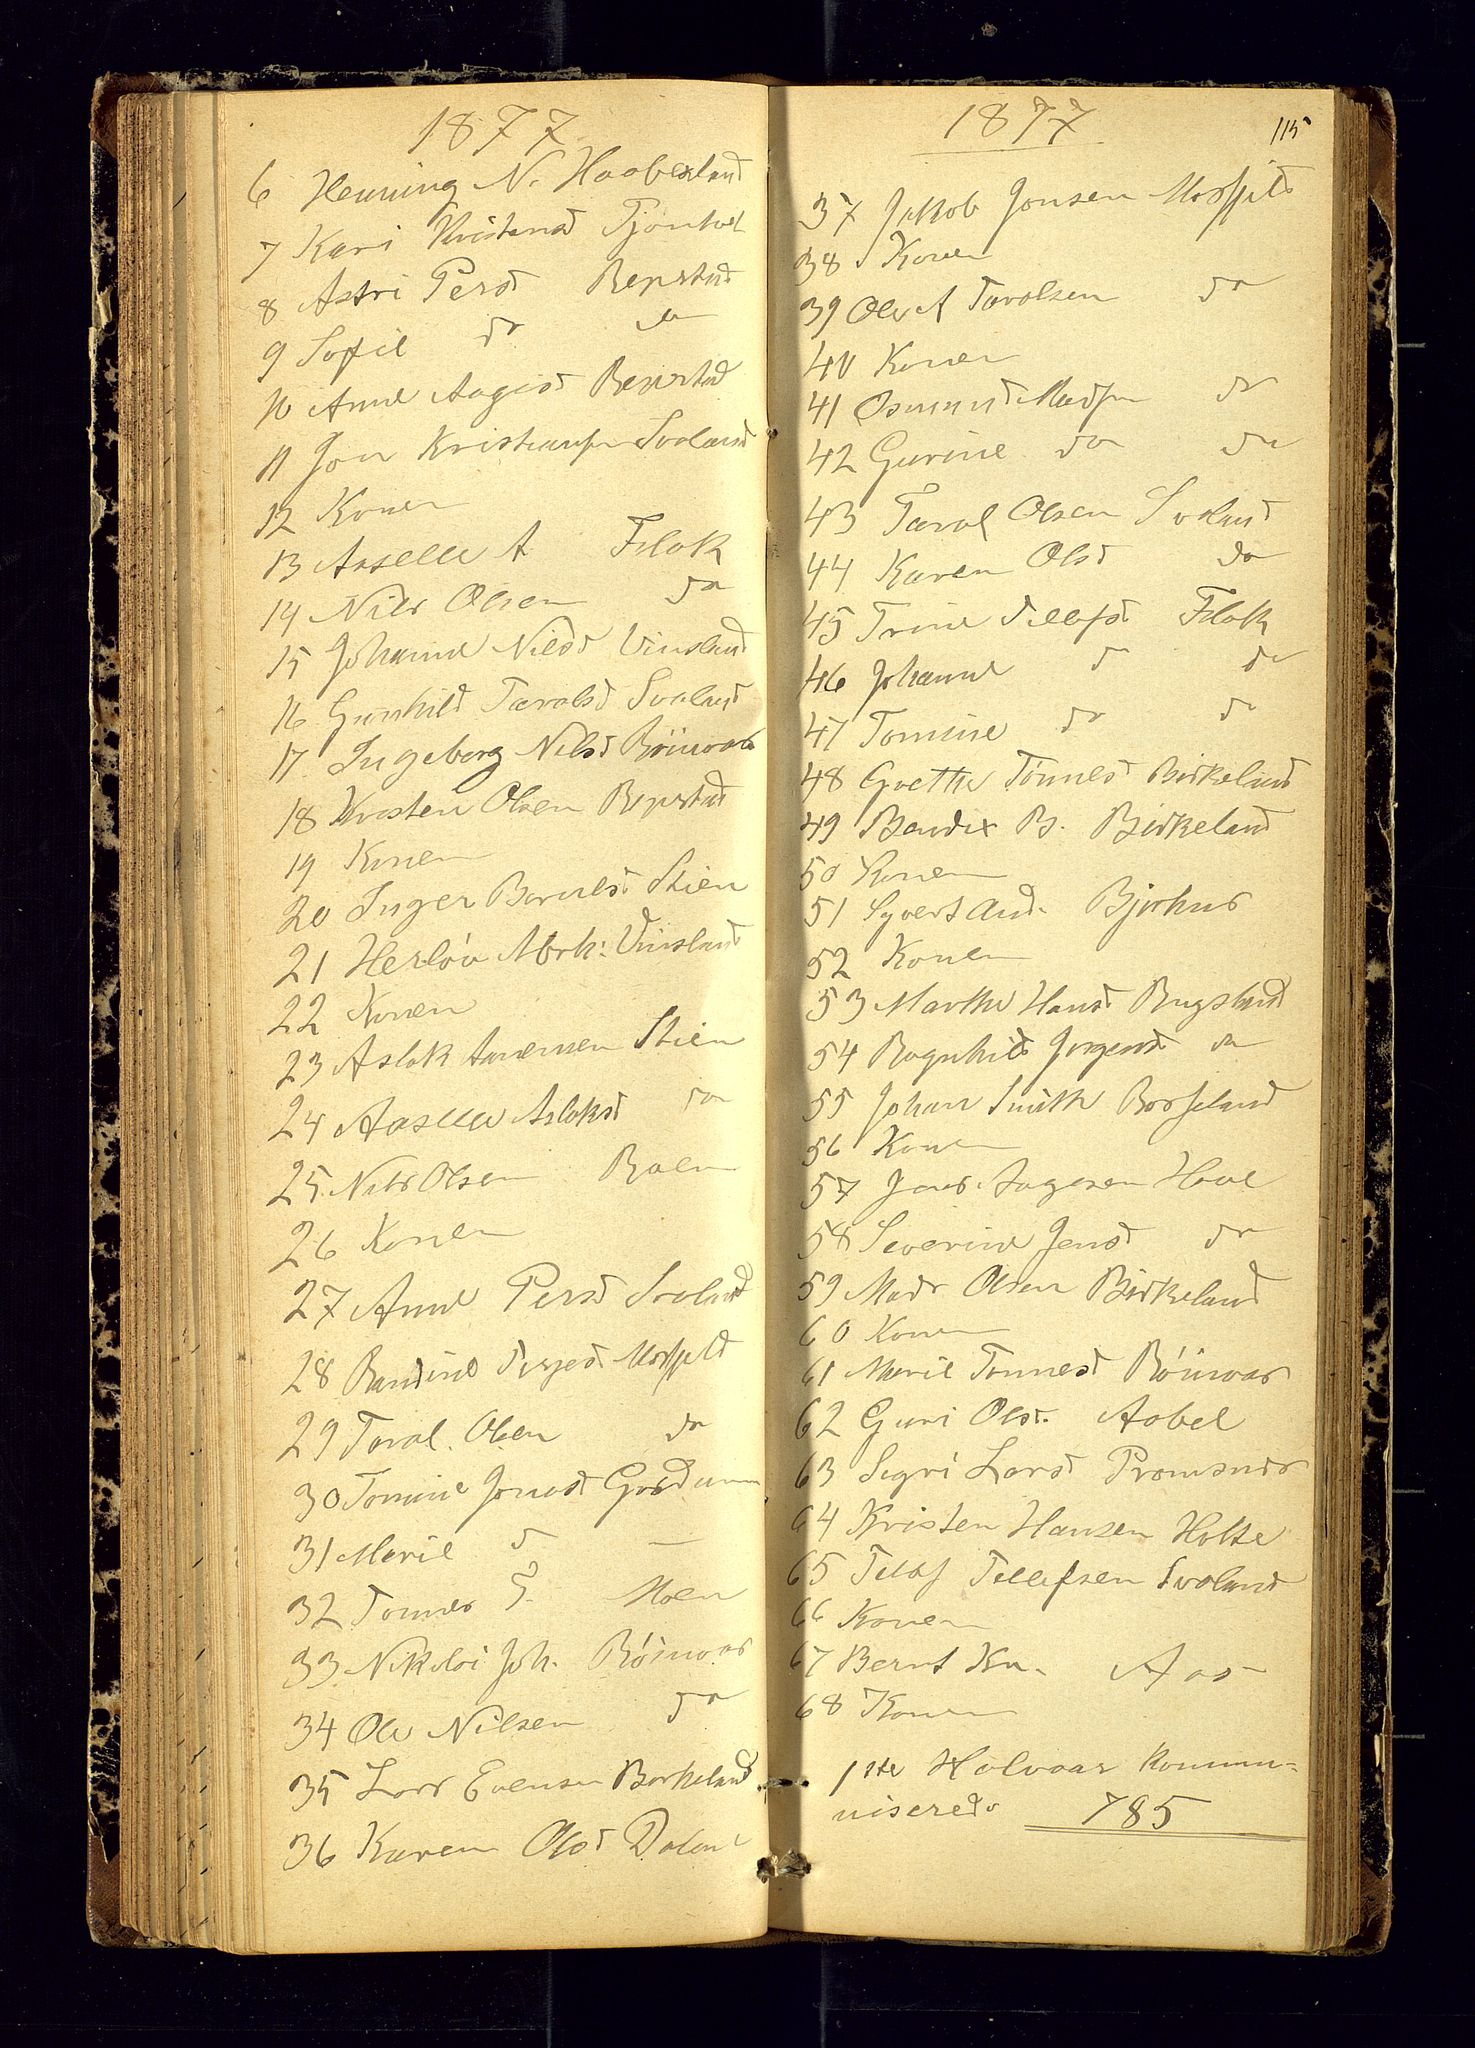 1877
6 Henning N. Haaberland
7 Kari Kristensd Tjomhol
8 Astri Persd Repstad
9 Sofie do do
10 Anne Aagesd Repstad
11 Jon Kristiansen Svaland
12 Konen
13 Aaselle A Fdok
14 Nils Olsen do
15 Johanne Nilsd Vinsland
16 Gunhild Taralsd Svaland
17 Ingeborg Nilsd Röinaas
18 Kristen Olsen Repstad
19 Konen
20 Inger Berntsd Stien
21 Herlöv Abrh: Vinsland
22 Konen
23 Aslak Stien
24 Aaselle Aslaksd do
25 Nils Olsen Roen
26 Konen
27 Anne Persd Svaland
28 Randine Terjesd Mosfjeld
29 Taral. Olsen do
30 Tomine Jonasd
31 Marie d —
32 Tønnes T. Moen
33 Nikolai Joh. Röinaas
34 Ole Nilsen do
35 Lars Evensen Birkeland
36 Karen Olsd Dalane
1877
115
37 Jakob Jonsen Mosfjeld
38 Konen
39 Ole A Taralsen do
40 Konen
41 Osmund Madsen do
42 Gurine do do
43 Taral Olsen Svaland
44 Karen Olsd do
45 Trine Tellefsd Fdok
46 Johanne d do
47 Tomine do do
48 Grethe Tönnesd Birkeland
49 Bendix B. Birkeland
50 Konen
51 Syvert And. Bjorhus
52 Konen
53 Marthe Hansd Rugsland
54 Ragnhild Jørgensd do
55 Johan Smith Bosseland
56 Konen
57 Jens Aagesen Hove
58 Severine Jensd do
59 Mads Olsen Birkeland
60 Konen
61 Marie Tønnesd Röinaas
62 Guri Olsd. Aabel
63 Sigri Larsd
64 Kristen Hansen Holte
65 Tellef Tellefsen Svaland
66 Konen
67 Bernt Kn. Aas
68 Konen
1ste Halvaar Kommu-
niserede 785